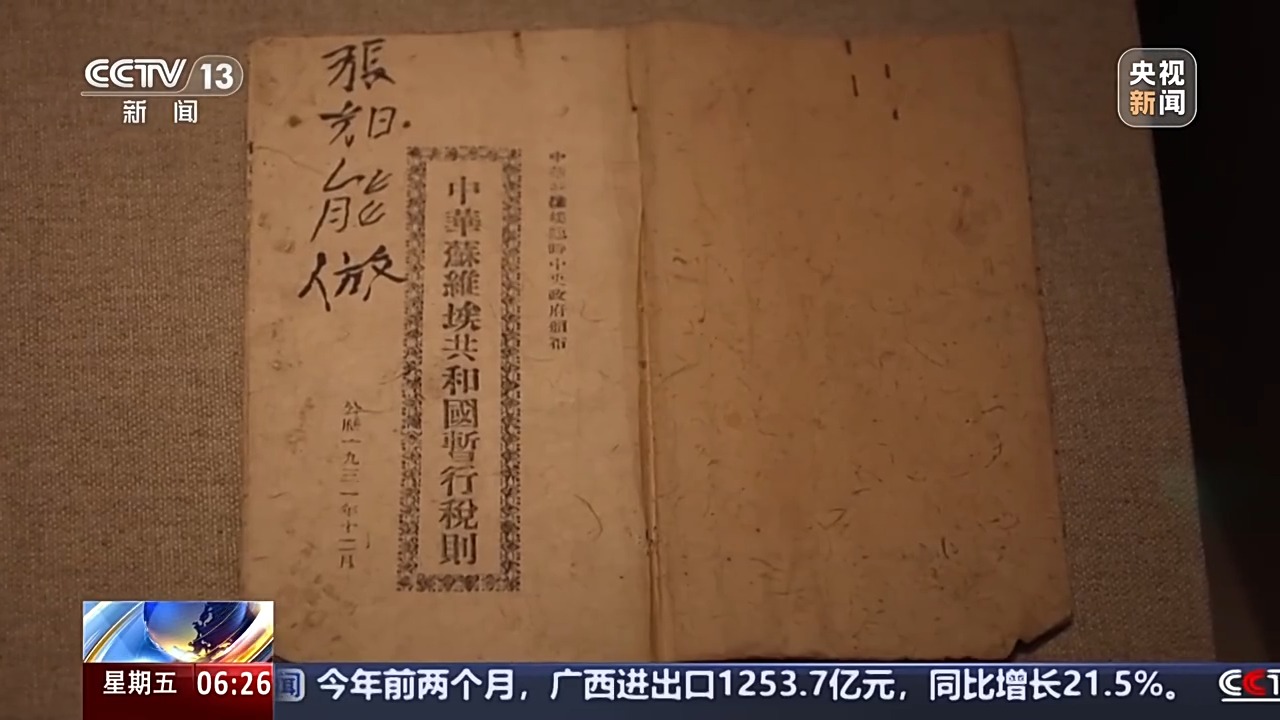 CCTV 13
新闻
央视
新闻
中華蘇維埃共和國臨時中央政府頒布
中華蘇維埃共和國暫行稅則
公曆一九三一年十二月
張
能
星期五 06:26
闻 今年前两个月，广西进出口1253.7亿元，同比增长21.5%。